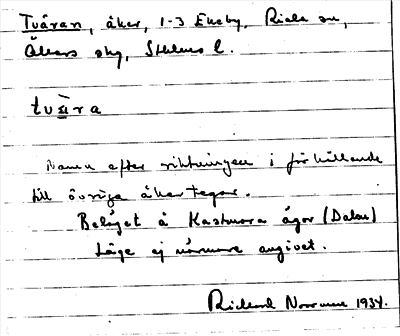 Tvåran, åker, 1-3 Ekeby, Riala sn,
Åkers skg, Sthlms l.
tvɜ̀ra
Namn efter riktningen i förhållande
till övriga åkertegar.
Beläget å Kastmora ägor (Dalen)
Läge ej närmare angivet.
Rickard Norrman 1934.